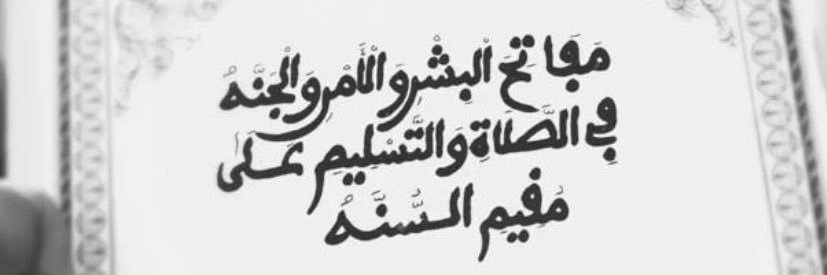 مَفَاتِحُ الْبِشْرِ وَالْأَمْنِ وَالْجَنَّهْ
فِي الصَّلَاةِ وَالتَّسْلِيمِ عَلَى
مُقِيمِ السُّنَّهْ